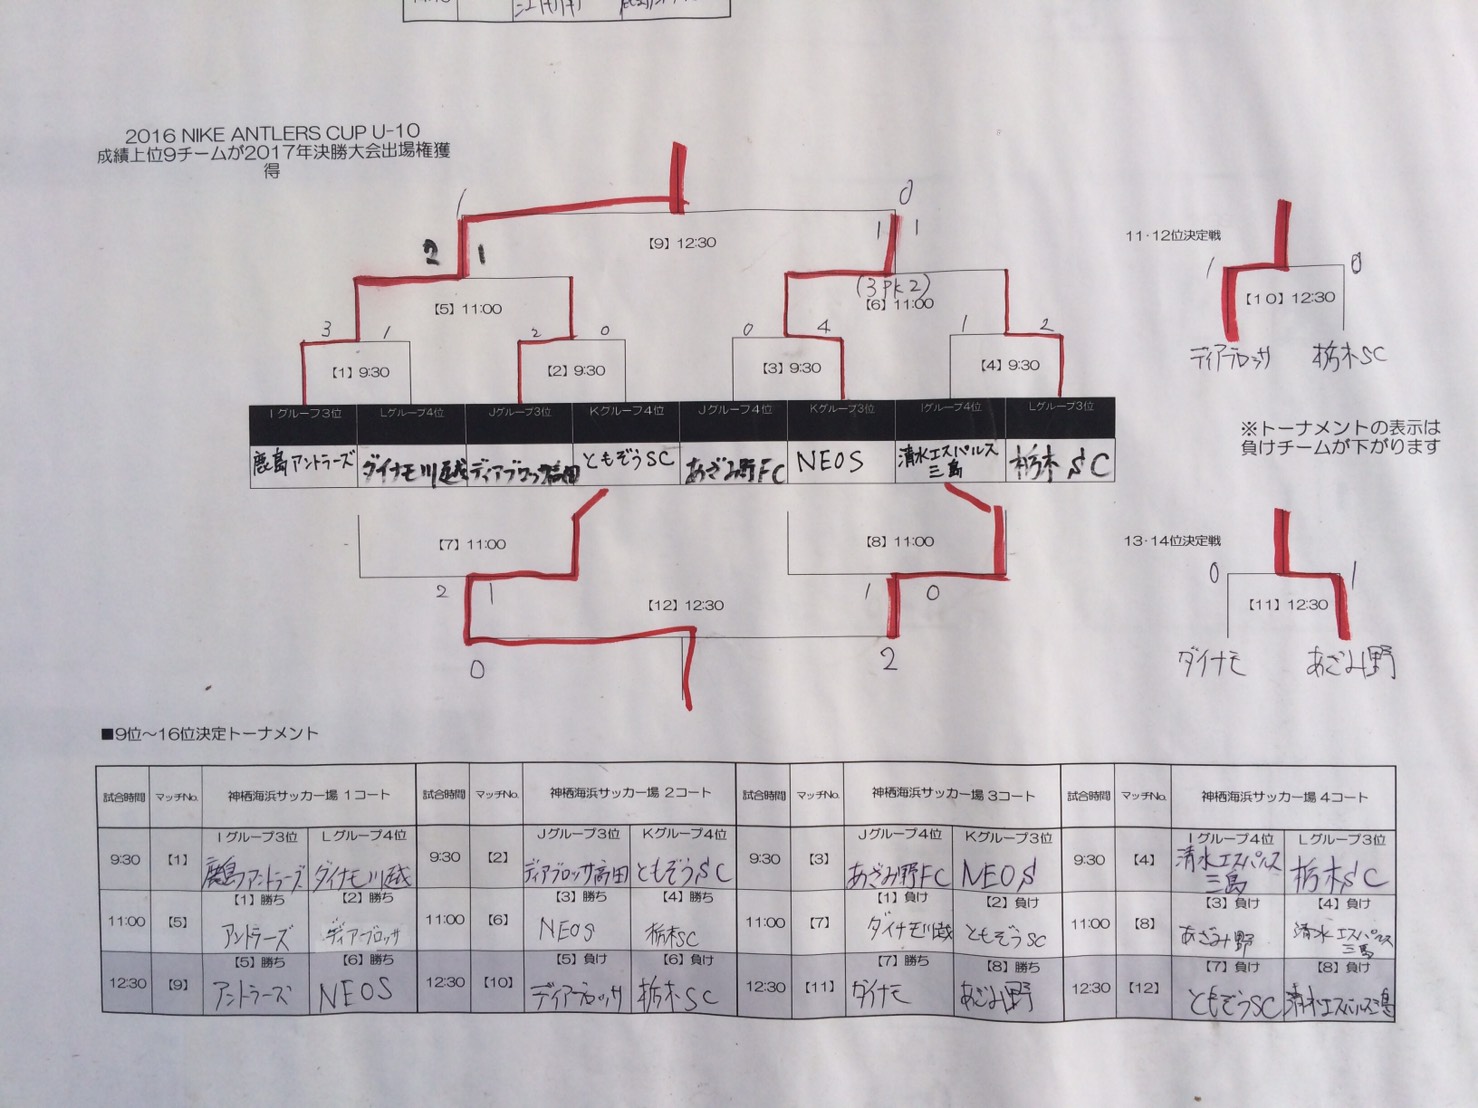 2016 NIKE ANTLERS CUP U-10
成績上位9チームが2017年決勝大会出場権獲
得
1 0
【9】12:30
2 1 1 1
(3 PK 2)
【5】11:00 【6】11:00
3 1 2 0 0 4 1 2
【1】9:30 【2】9:30 【3】9:30 【4】9:30
Iグループ3位 Lグループ4位 Jグループ3位 Kグループ4位 Jグループ4位 Kグループ3位 Iグループ4位 Lグループ3位
鹿島アントラーズ ダイナモ川越 ディアブロッサ高田 ともぞうSC あざみ野FC NEOS 清水エスパルス三島 栃木SC
【7】11:00 【8】11:00
2 1 1 0
【12】12:30
0 2
11・12位決定戦
1 0
【10】12:30
ディアブロッサ 栃木SC
※トーナメントの表示は
負けチームが下がります
13・14位決定戦
0 1
【11】12:30
ダイナモ あざみ野
■9位～16位決定トーナメント
試合時間 マッチNo. 神栖海浜サッカー場 1コート 試合時間 マッチNo. 神栖海浜サッカー場 2コート 試合時間 マッチNo. 神栖海浜サッカー場 3コート 試合時間 マッチNo. 神栖海浜サッカー場 4コート
Iグループ3位 Lグループ4位 Jグループ3位 Kグループ4位 Jグループ4位 Kグループ3位 Iグループ4位 Lグループ3位
9:30 【1】 鹿島アントラーズ ダイナモ川越 9:30 【2】 ディアブロッサ高田 ともぞうSC 9:30 【3】 あざみ野FC NEOS 9:30 【4】 清水エスパルス三島 栃木SC
【1】勝ち 【2】勝ち 【3】勝ち 【4】勝ち 【1】負け 【2】負け 【3】負け 【4】負け
11:00 【5】 アントラーズ ディアブロッサ 11:00 【6】 NEOS 栃木SC 11:00 【7】 ダイナモ川越 ともぞうSC 11:00 【8】 あざみ野 清水エスパルス三島
【5】勝ち 【6】勝ち 【5】負け 【6】負け 【7】勝ち 【8】勝ち 【7】負け 【8】負け
12:30 【9】 アントラーズ NEOS 12:30 【10】 ディアブロッサ 栃木SC 12:30 【11】 ダイナモ あざみ野 12:30 【12】 ともぞうSC 清水エスパルス三島